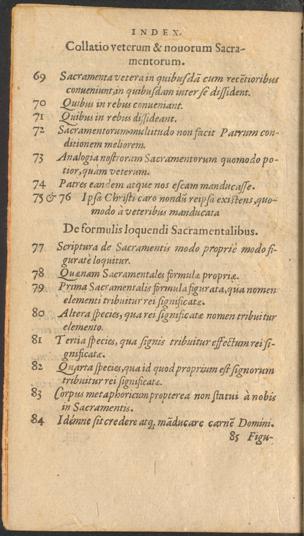 INDEX.
Collatio veterum & nouorum Sacra-
mentorum.
69 Sacramenta vetera in quibusdā cum recētioribus
conueniunt, in quibusdam inter se dissident.
70 Quibus in rebus conueniant.
71 Quibus in rebus dissideant.
72 Sacramentorum multitudo non facit Patrum con-
ditionem meliorem.
73 Analogia nostrorum Sacramentorum quomodo po-
tior, quam veterum.
74 Patres eandem atque nos escam manducasse.
75 & 76 Ipsa Christi caro nondū reipsa existens, quo-
modo à veteribus manducata
De formulis loquendi Sacramentalibus.
77 Scriptura de Sacramentis modo propriè modo fi-
guratè loquitur.
78 Quænam Sacramentales formulæ propriæ.
79 Prima Sacramentalis formula figurata, qua nomen
elementi tribuitur rei significatæ.
80 Altera species, qua rei significatæ nomen tribuitur
elemento.
81 Tertia species, qua signis tribuitur effectum rei si-
gnificatæ.
82 Quarta species, qua id quod proprium est signorum
tribuitur rei significatæ.
83 Corpus metaphoricum propterea non statui à nobis
in Sacramentis.
84 Idémne sit credere atq; māducare carnē Domini.
85 Figu-